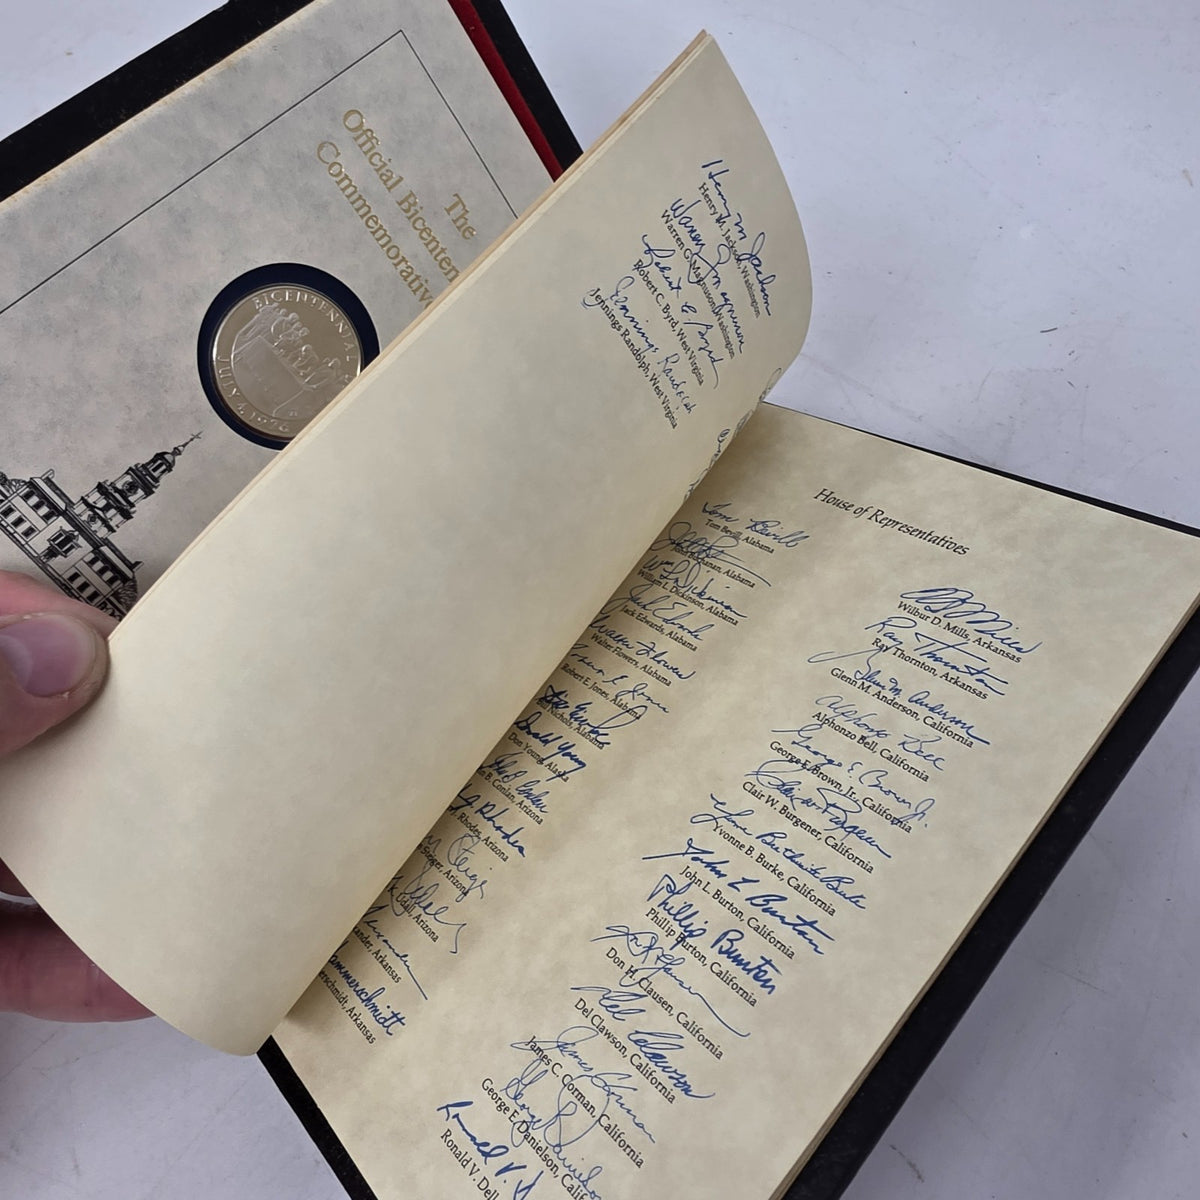 The
Official Bicenten
Commemorative
BICENTENNIAL
JULY 4, 1976
Henry M. Jackson
Henry M. Jackson, Washington
Warren G. Magnuson
Warren G. Magnuson, Washington
Robert C. Byrd
Robert C. Byrd, West Virginia
Jennings Randolph
Jennings Randolph, West Virginia
House of Representatives
Tom Bevill
Tom Bevill, Alabama
Buchanan, Alabama
Wm L Dickinson
William L. Dickinson, Alabama
Jack Edwards
Jack Edwards, Alabama
Walter Flowers
Walter Flowers, Alabama
Robert E. Jones
Robert E. Jones, Alabama
Nichols, Alabama
Don Young
Don Young, Alaska
B. Conlan, Arizona
Rhodes
Rhodes, Arizona
Steiger
Steiger, Arizona
Udall
Udall, Arizona
ander, Arkansas
ammerschmidt
erschmidt, Arkansas
Mills
Wilbur D. Mills, Arkansas
Ray Thornton
Ray Thornton, Arkansas
Glenn M. Anderson
Glenn M. Anderson, California
Alphonzo Bell
Alphonzo Bell, California
George E. Brown Jr.
George E. Brown, Jr., California
Clair W. Burgener
Clair W. Burgener, California
Yvonne Brathwaite Burke
Yvonne B. Burke, California
John L Burton
John L. Burton, California
Phillip Burton
Phillip Burton, California
Don H. Clausen
Don H. Clausen, California
Del Clawson
Del Clawson, California
James Corman
James C. Corman, California
George Danielson
George E. Danielson, Calif
Ronald V. D
Ronald V. Dell